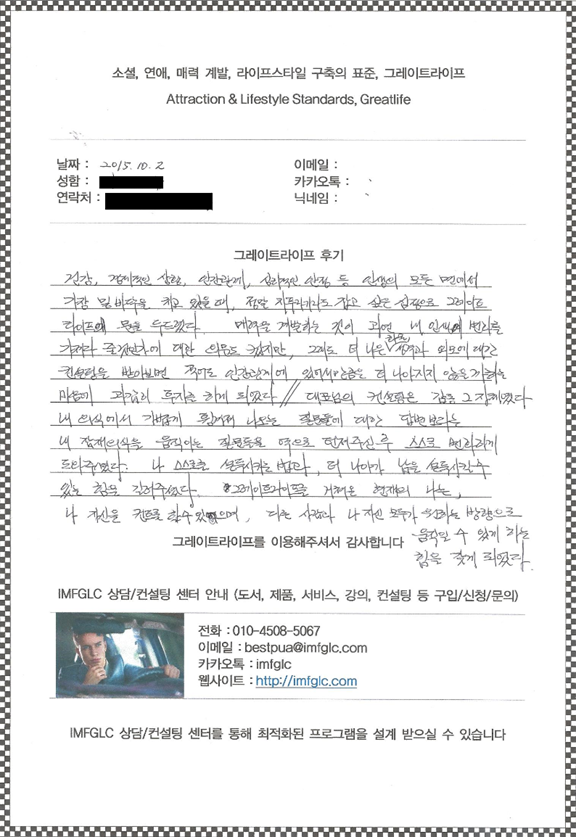 소셜, 연애, 매력 계발, 라이프스타일 구축의 표준, 그레이트라이프
Attraction & Lifestyle Standards, Greatlife
날짜 : 2015. 10. 2
이메일 :
성함 :
카카오톡 :
연락처 :
닉네임 :
그레이트라이프 후기
건강, 경제적인 상황, 인간관계, 심리적인 안정 등 인생의 모든 면에서
가장 밑바닥을 치고 있을 때, 정말 지푸라기라도 잡고 싶은 심정으로 그레이트
라이프에 문을 두드렸다. 매력을 계발하는 것이 과연 내 인생에 변화를
가져다 줄것인가에 대한 의문도 컸지만, 그래도 더 나은 화술 성격과 외모에 대한
컨설팅을 받아보면 적어도 인간관계에 있어서만큼은 더 나아지지 않을까하는
마음에 과감히 투자를 하게 되었다 // 대표님의 컨설팅은 감동 그 자체였다
내 의식에서 가볍게 튀어져 나오는 질문들에 대한 답변보다는
내 잠재의식을 움직이는 질문들을 역으로 던져주신 후 스스로 변화하게
도와주셨다. 나 스스로를 설득시키는 방법과, 더 나아가 남을 설득시킬 수
있는 힘을 길러주셨다. 그레이트라이프를 거쳐온 현재의 나는,
나 자신을 컨트롤 할수 있으며, 다른 사람과 나 자신 모두가 원하는 방향으로
움직일 수 있게 하는
그레이트라이프를 이용해주셔서 감사합니다
힘을 갖게 되었다.
IMFGLC 상담/컨설팅 센터 안내 (도서, 제품, 서비스, 강의, 컨설팅 등 구입/신청/문의)
전화 : 010-4508-5067
이메일 : bestpua@imfglc.com
카카오톡 : imfglc
웹사이트 : http://imfglc.com
IMFGLC 상담/컨설팅 센터를 통해 최적화된 프로그램을 설계 받으실 수 있습니다